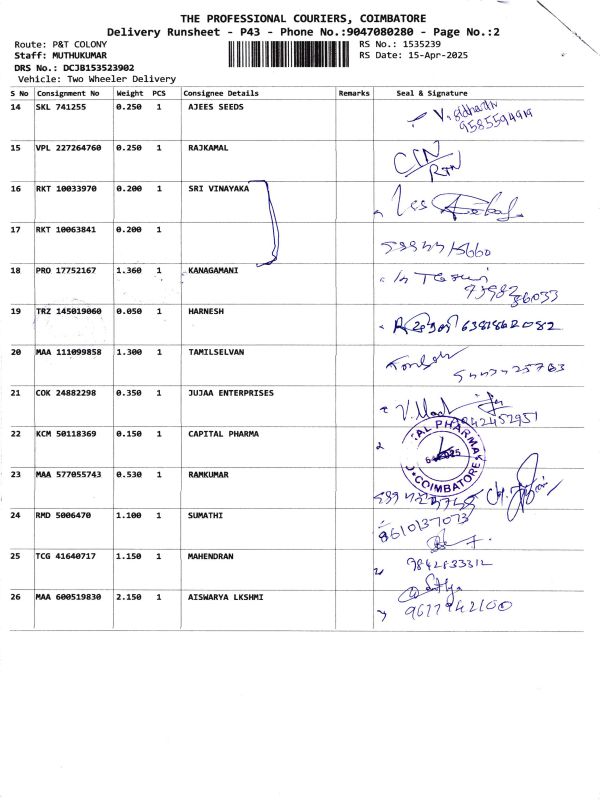 THE PROFESSIONAL COURIERS, COIMBATORE
Delivery Runsheet - P43 - Phone No.:9047080280 - Page No.:2
Route: P&T COLONY RS No.: 1535239
Staff: MUTHUKUMAR RS Date: 15-Apr-2025
DRS No.: DCJB153523902
Vehicle: Two Wheeler Delivery
S No Consignment No Weight PCS Consignee Details Remarks Seal & Signature
14 SKL 741255 0.250 1 AJEES SEEDS V. Sidharth
9585594919
15 VPL 227264760 0.250 1 RAJKAMAL
16 RKT 10033970 0.200 1 SRI VINAYAKA
17 RKT 10063841 0.200 1
18 PRO 17752167 1.360 1 KANAGAMANI
19 TRZ 145019060 0.050 1 HARNESH 6381862082
20 MAA 111099858 1.300 1 TAMILSELVAN
21 COK 24882298 0.350 1 JUJAA ENTERPRISES
22 KCM 50118369 0.150 1 CAPITAL PHARMA COIMBATORE
23 MAA 577055743 0.530 1 RAMKUMAR
24 RMD 5006470 1.100 1 SUMATHI 8610137073
25 TCG 41640717 1.150 1 MAHENDRAN
26 MAA 600519830 2.150 1 AISWARYA LKSHMI